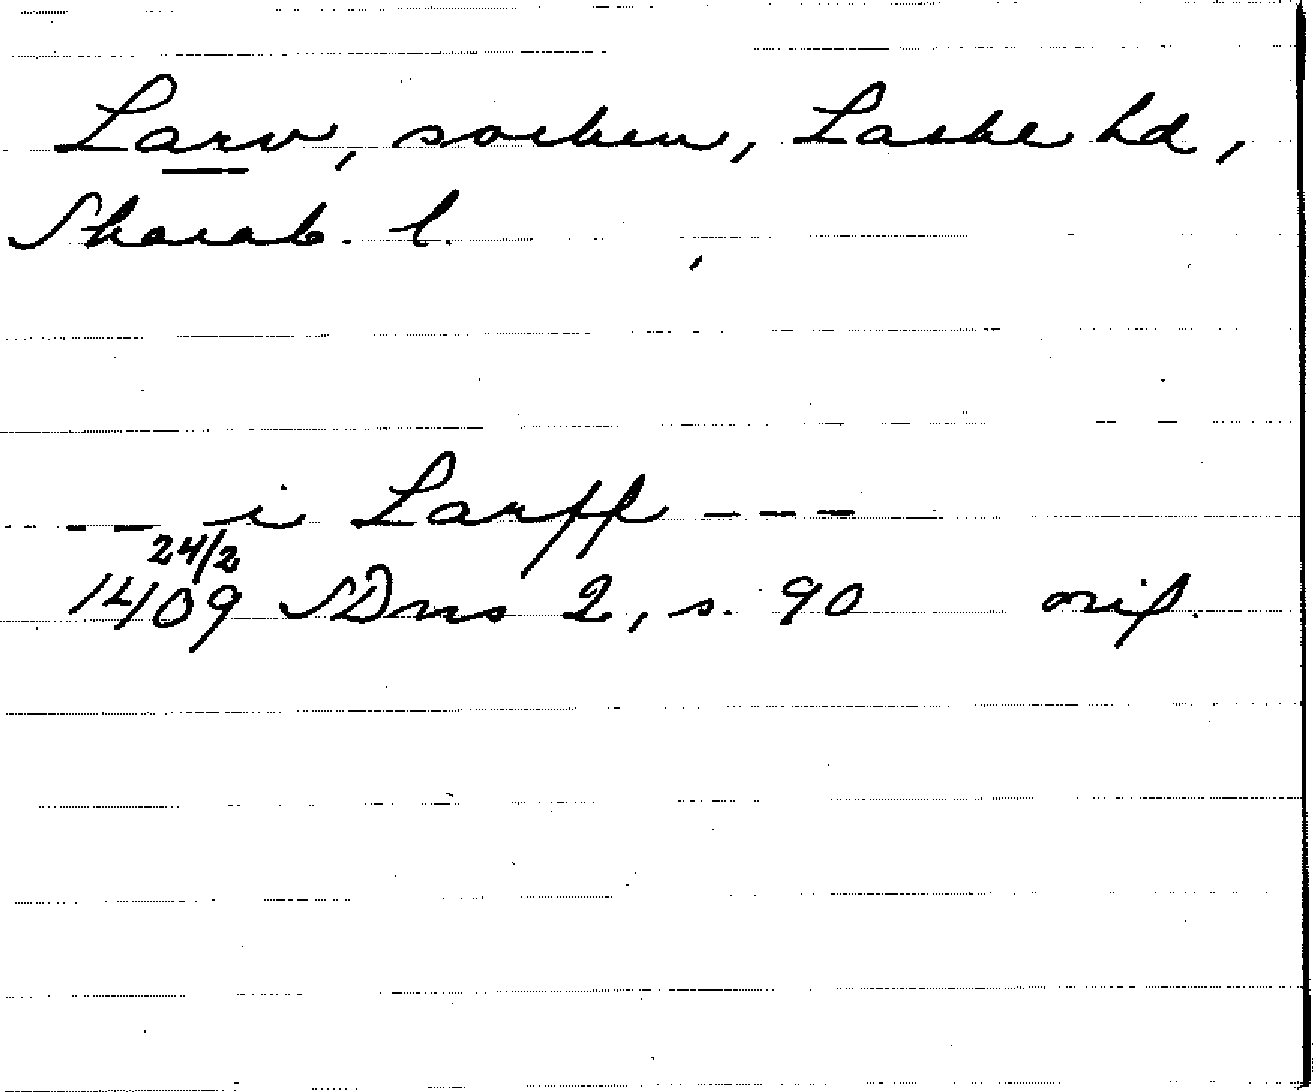 Larv, socken, Laske hd,
Skarab. l.
-- i Larff ---
24/2
1409 SDns 2, s. 90 orig.